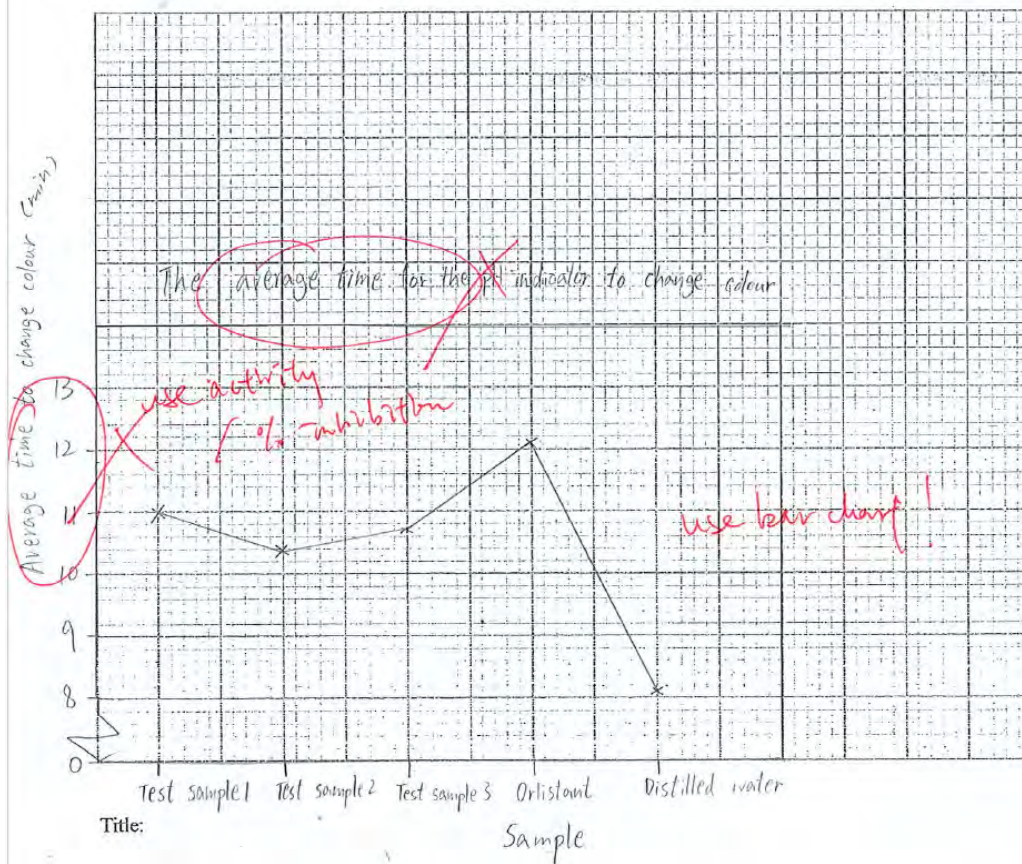 Average time to change colour (min)
The average time for the pH indicator to change colour
use activity
/ % inhibition
13
12
11
10
9
8
0
use bar chart!
Test sample 1 Test sample 2 Test sample 3 Orlistant Distilled water
Title:
Sample